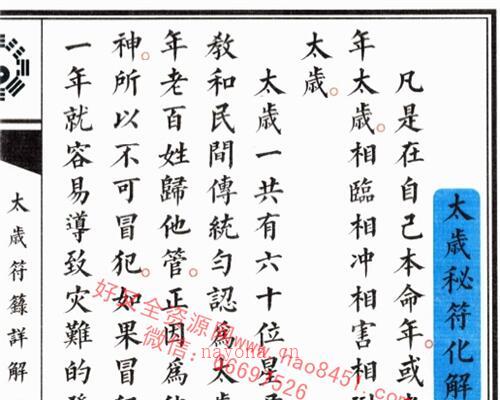 太歲秘符化解
凡是在自己本命年。或
年太歲。相臨相冲相害相
太歲。
太歲一共有六十位星
教和民間傳統勻認爲太歲
年老百姓歸他管。正因爲
神。所以不可冒犯。如果冒
一年就容易導致灾難的
太歲符籙詳解
nayona.cn